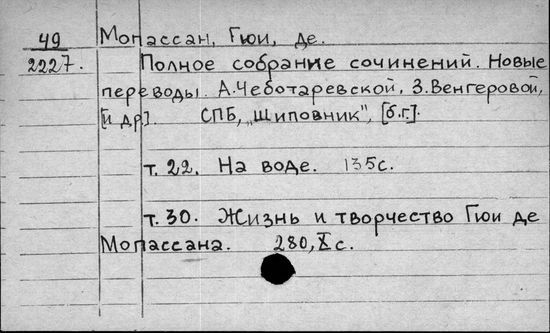 49 Мопассан, Гюи, де.
2227. Полное собрание сочинений. Новые
переводы. А.Чеботаревской, З.Венгеровой,
[и др]. СПБ, „Шиповник", [б.г.].
т. 22. На воде. 135с.
т. 30. Жизнь и творчество Гюи де
Мопассана. 280, X с.